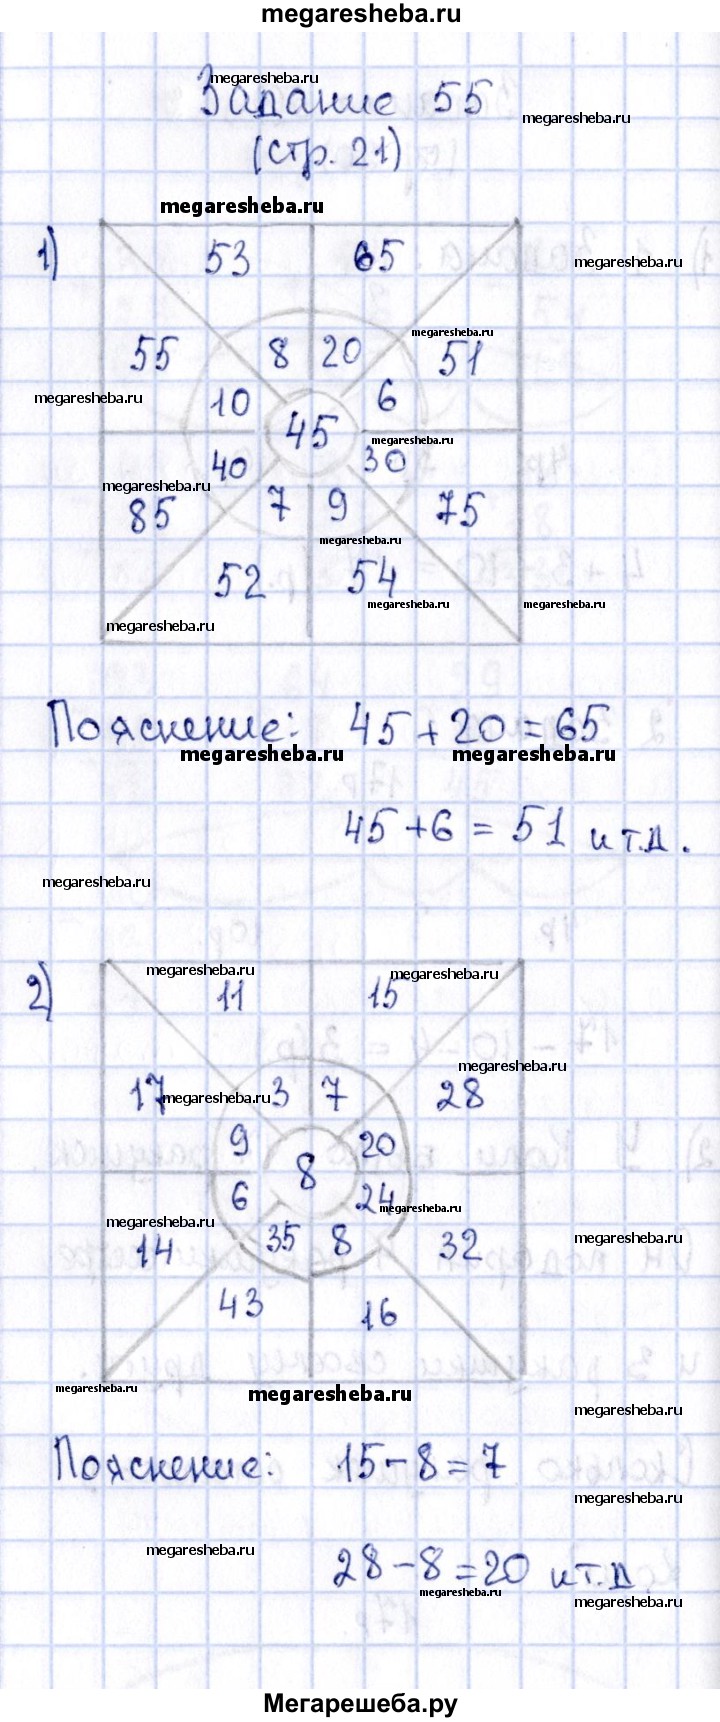 megaresheba.ru
megaresheba.ru
Задание 55
megaresheba.ru
(стр. 21)
megaresheba.ru
1)
53 65
megaresheba.ru
megaresheba.ru
55 8 20 51
megaresheba.ru
10 6
45
megaresheba.ru
40 30
megaresheba.ru
85 7 9 75
megaresheba.ru
52 54
megaresheba.ru megaresheba.ru
megaresheba.ru
Пояснение: 45 + 20 = 65
megaresheba.ru megaresheba.ru
45 + 6 = 51 и т.д.
megaresheba.ru
2)
megaresheba.ru megaresheba.ru
11 15
megaresheba.ru
17 3 7 28
megaresheba.ru
9 20
8
6 24
megaresheba.ru
megaresheba.ru
14 35 8 32
megaresheba.ru
43 16
megaresheba.ru
megaresheba.ru
megaresheba.ru
Пояснение: 15 - 8 = 7
megaresheba.ru
megaresheba.ru
28 - 8 = 20 и т.д.
megaresheba.ru
megaresheba.ru
Мегарешеба.ру